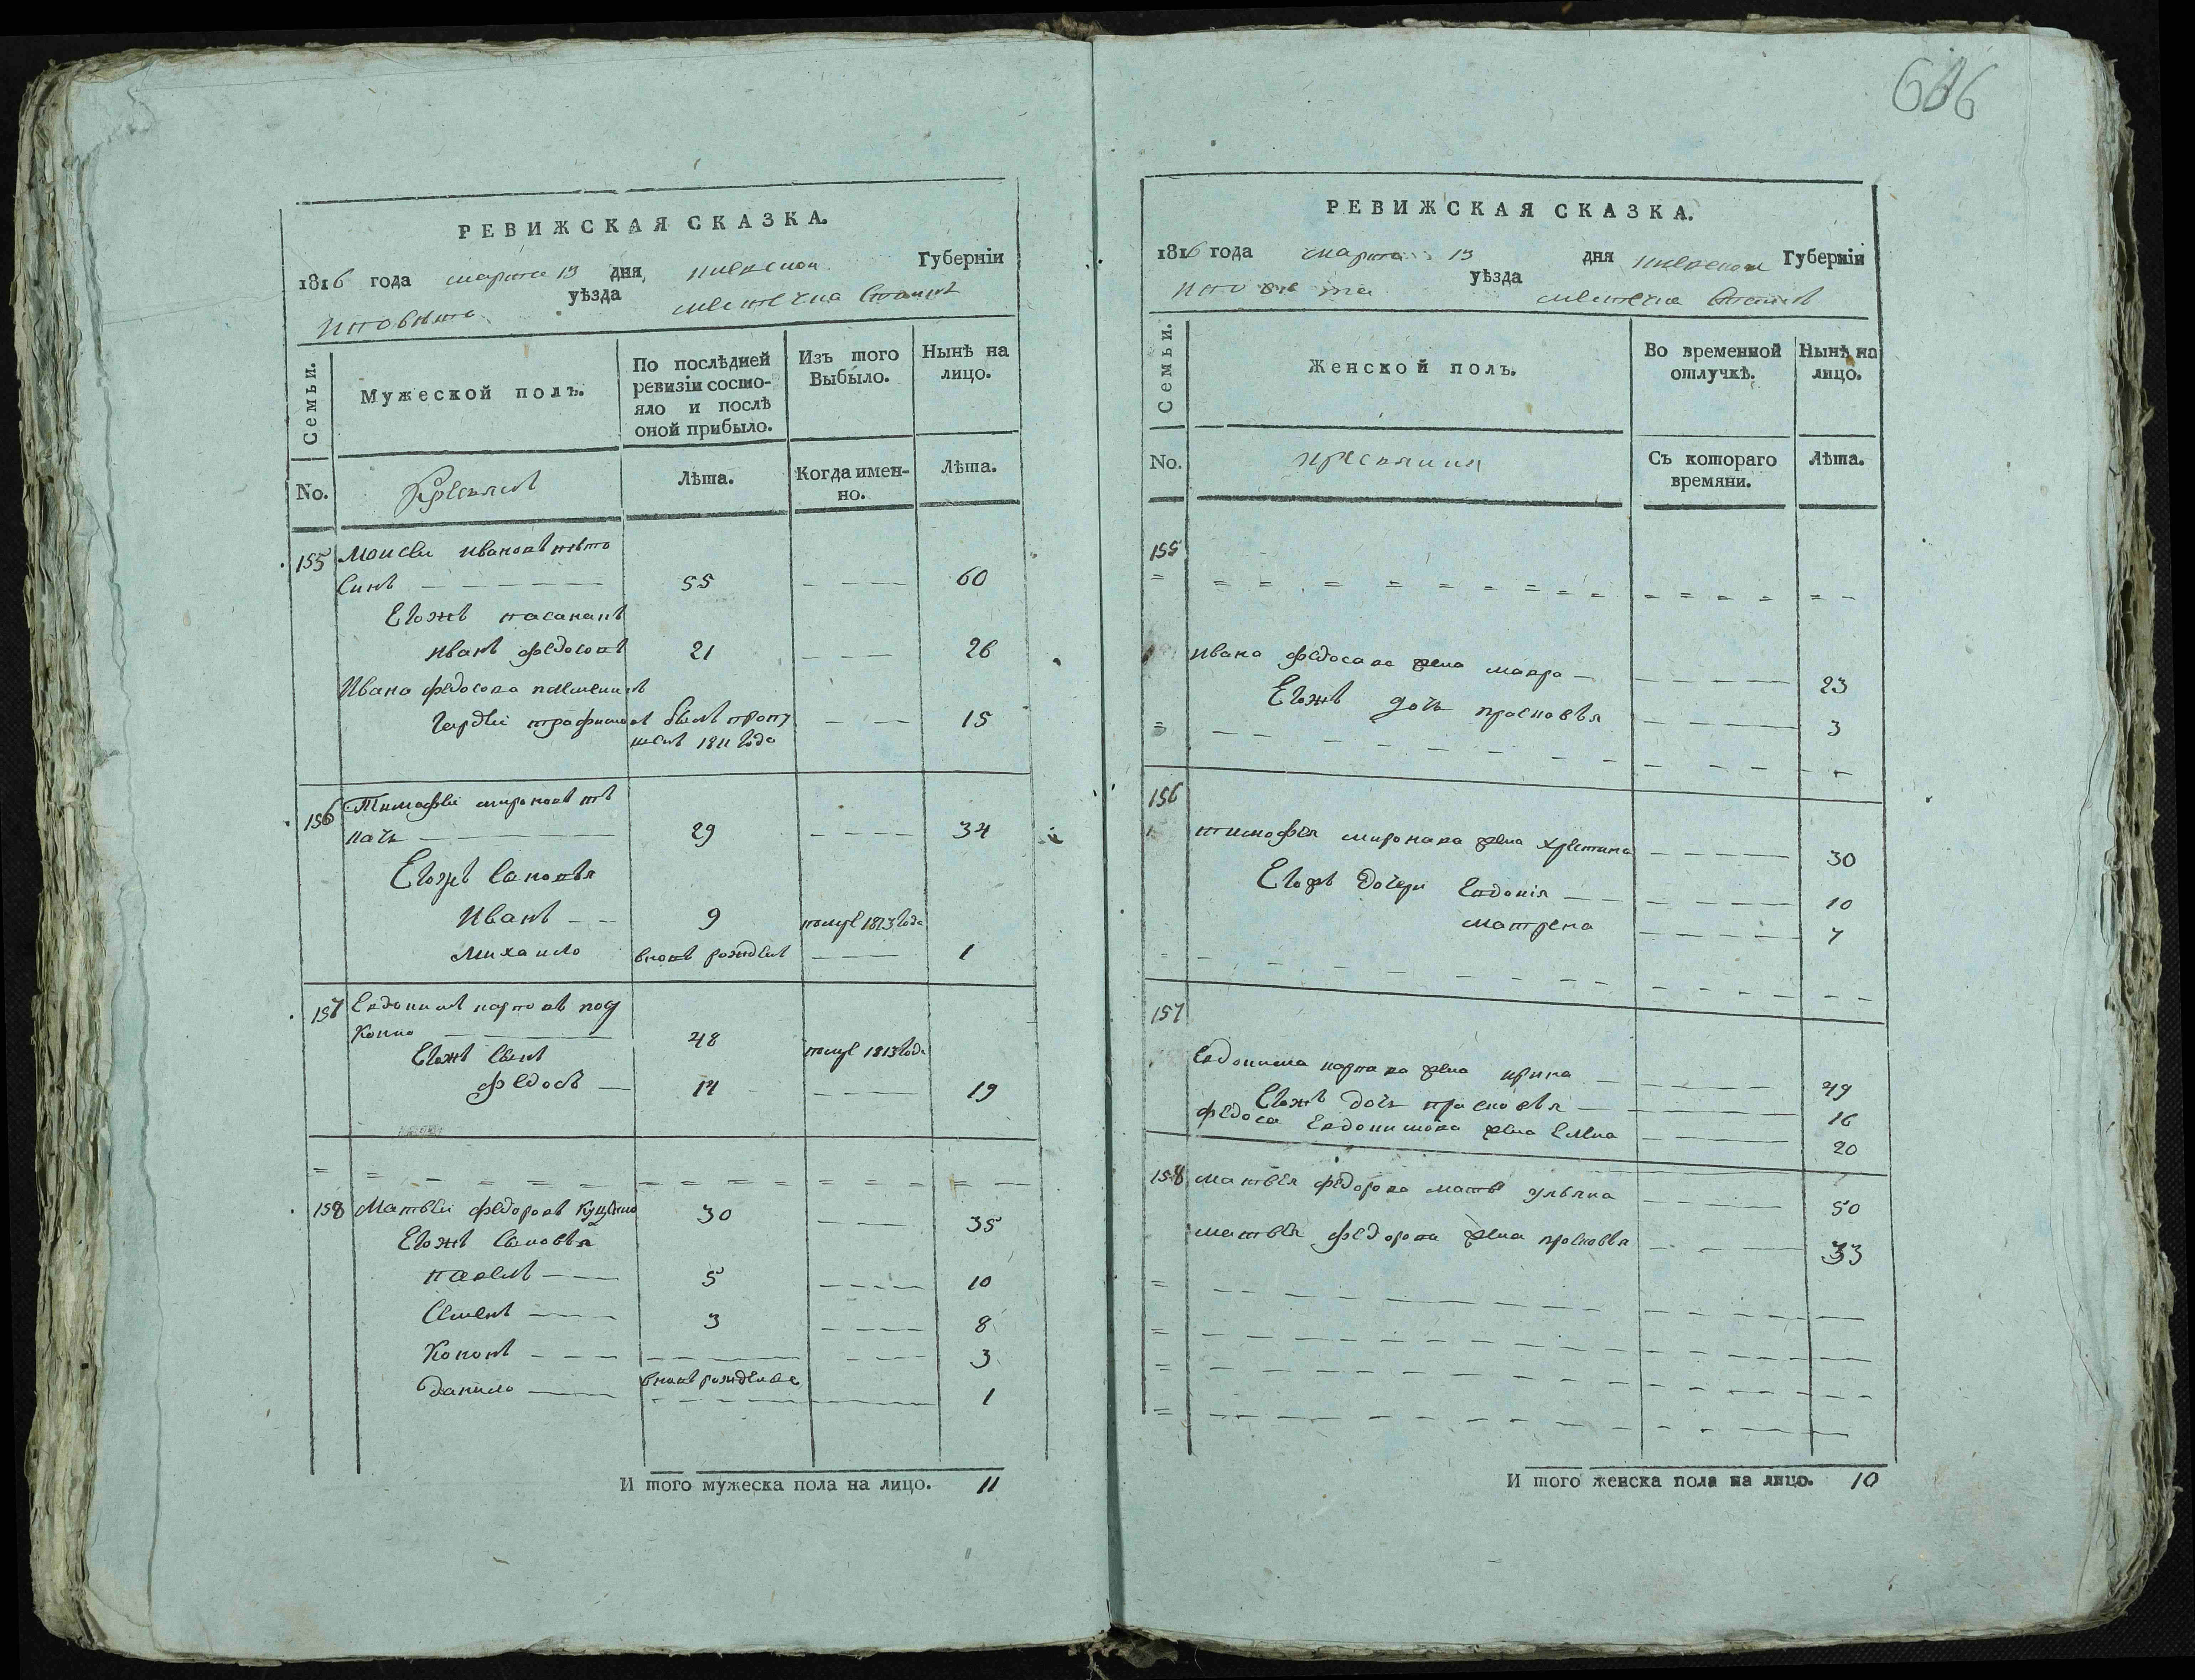 616
РЕВИЖСКАЯ СКАЗКА.
1816 года марта 13 дня Киевской Губерніи
уѣзда местечка
Мужеской полъ.
Семьи.
По послѣдней ревизіи состояло и послѣ оной прибыло.
Изъ того Выбыло.
Нынѣ на лицо.
No.
Лѣта.
Когда именно.
Лѣта.
155 Моисеи Ивановъ
синъ 55 60
Егожъ пасанокъ
иванъ федосовъ 21 26
Ивана федосова племеникъ
трофимовъ былъ пропу 15
щенъ 1811 года
156 Тимофеи мироновъ тъ
качъ 29 34
Егожъ сыновья
Иванъ 9 помре 1813 года
Михаило вновь рожденъ 1
157 Евдокимъ карповъ под
48 помре 1813 года
Егожъ сынъ
федосъ 14 19
158 Матвеи федоровъ 30 35
Егожъ сыновья
павелъ 5 10
Семенъ 3 8
Кононъ 3
вновь рожденые
данило 1
И того мужеска пола на лицо. 11
РЕВИЖСКАЯ СКАЗКА.
1816 года марта 13 дня Киевской Губерніи
уѣзда местечка
Семьи.
Женской полъ.
Во временной отлучкѣ.
Нынѣ на лицо.
No.
Съ котораго времяни.
Лѣта.
155
ивана федосова жена мавра 23
Егожъ дочь прасковья 3
156
тимофея миронова жена христина 30
Егожъ дочери Евдокія 10
матрена 7
157
Евдокима карпова жена ирина 49
Егожъ дочь прасковья 16
федоса Евдокимова жена Елена 20
158 матвея федорова мать ульяна 50
матвея федорова жена прасковья 33
И того женска пола на лицо. 10